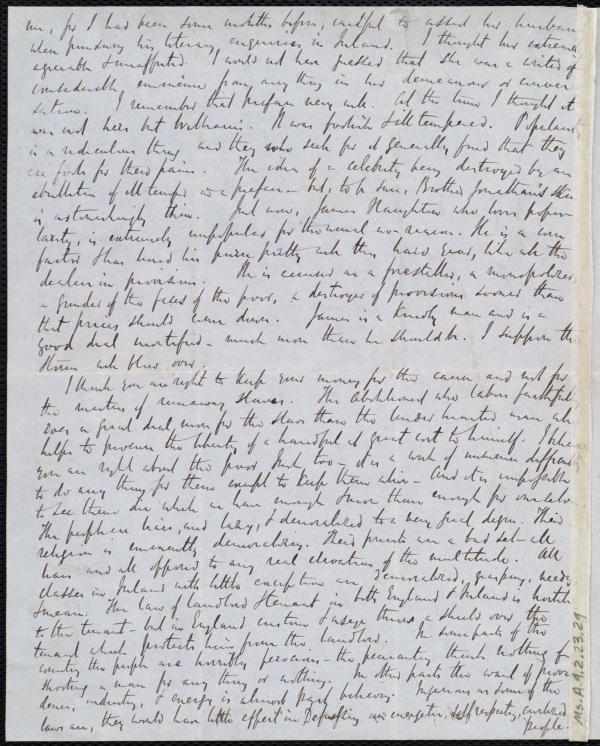 me, for I had been some months before, careful to assist her husband
when pursuing his literary enquiries in Ireland. I thought her extremely
agreeable & unaffected. I would not have guessed that she was a writer of
considerable eminence from any thing in her demeanour or conver
sation. I remember that preface very well. At the time I thought it
was not hers but William's. It was foolish & ill tempered. Popularity
is a ridiculous thing and they who seek for it generally find that they
are fools for their pains. The idea of a celebrity being destroyed by an
ebullition of ill temper in a preface - but, to be sure, Brother Jonathan's skin
is astonishingly thin. Just now, James Haughton who loves popu
larity, is extremely unpopular for the usual no-reason. He is a corn
factor & has lined his purse pretty well this hard year, like all the
dealers in provisions. He is accused as a forestaller, a monopolizer,
a grinder of the faces of the poor, a destroyer of provisions sooner than
that prices should come down. James is a kindly man and is a
good deal mortified - much more than he should be. I suppose the
storm will blow over.
I think you are right to keep your money for the cause and not for
the masters of runaway slaves. The abolitionist who labors faithfully
does a great deal more for the slave than the tender hearted man who
helps to procure the liberty of a handful at great cost to himself. I believe
you are right about the poor Irish, too - it is a work of immense difficulty
to do any thing for them except to keep them alive - and it is impossible
to see them die while we have enough & more than enough for ourselves.
The people are liars, and lazy, & demoralized to a very great degree. Their
religion is eminently demoralizing. Their priests are a bad set - all
liars and all opposed to any real elevation of the multitude. All
classes in Ireland with little exception are demoralized, grasping, needy,
& mean. The law of landlord & tenant in both England & Ireland is hostile
to the tenant - but in England custom & usage throws a shield over the
tenant which protects him from the landlord. In some parts of the
country the people are horribly ferocious - the peasantry think nothing of
shooting a man for any thing or nothing. In other parts the want of provi
dence, industry, & energy is almost past believing. Injurious as some of the
laws are, they would have little effect in depressing an energetic, self respecting, civilized
people.
Ms. A. 9.2.23.29